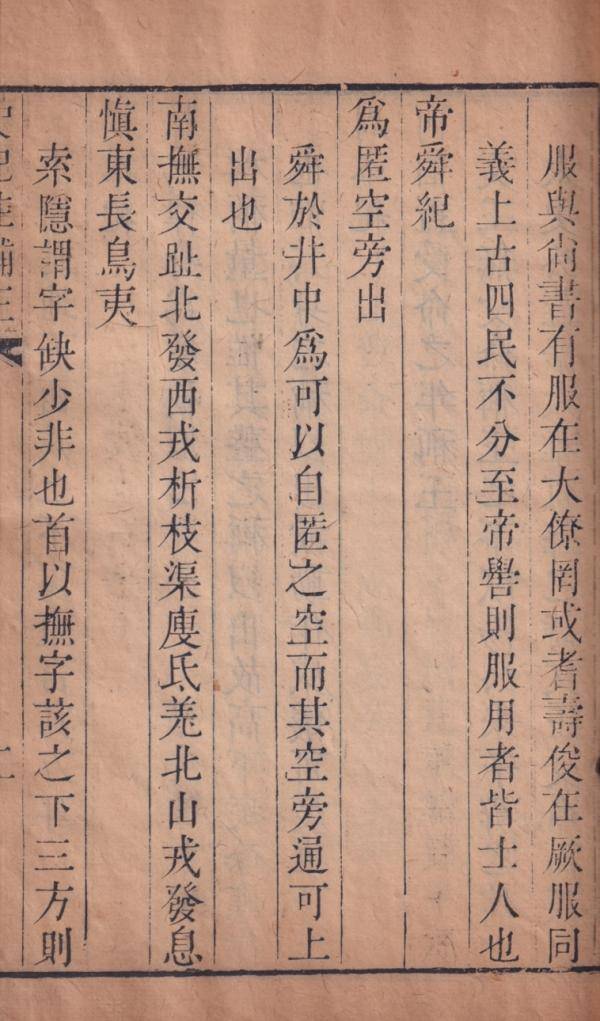 服與尚書有服在大僚罔或耆壽俊在厥服同
義上古四民不分至帝嚳則服用者皆士人也
帝舜紀
爲匿空旁出
舜於井中爲可以自匿之空而其空旁通可上
出也
南撫交趾北發西戎析枝渠廋氐羗北山戎發息
愼東長鳥夷
索隱謂字缺少非也首以撫字該之下三方則